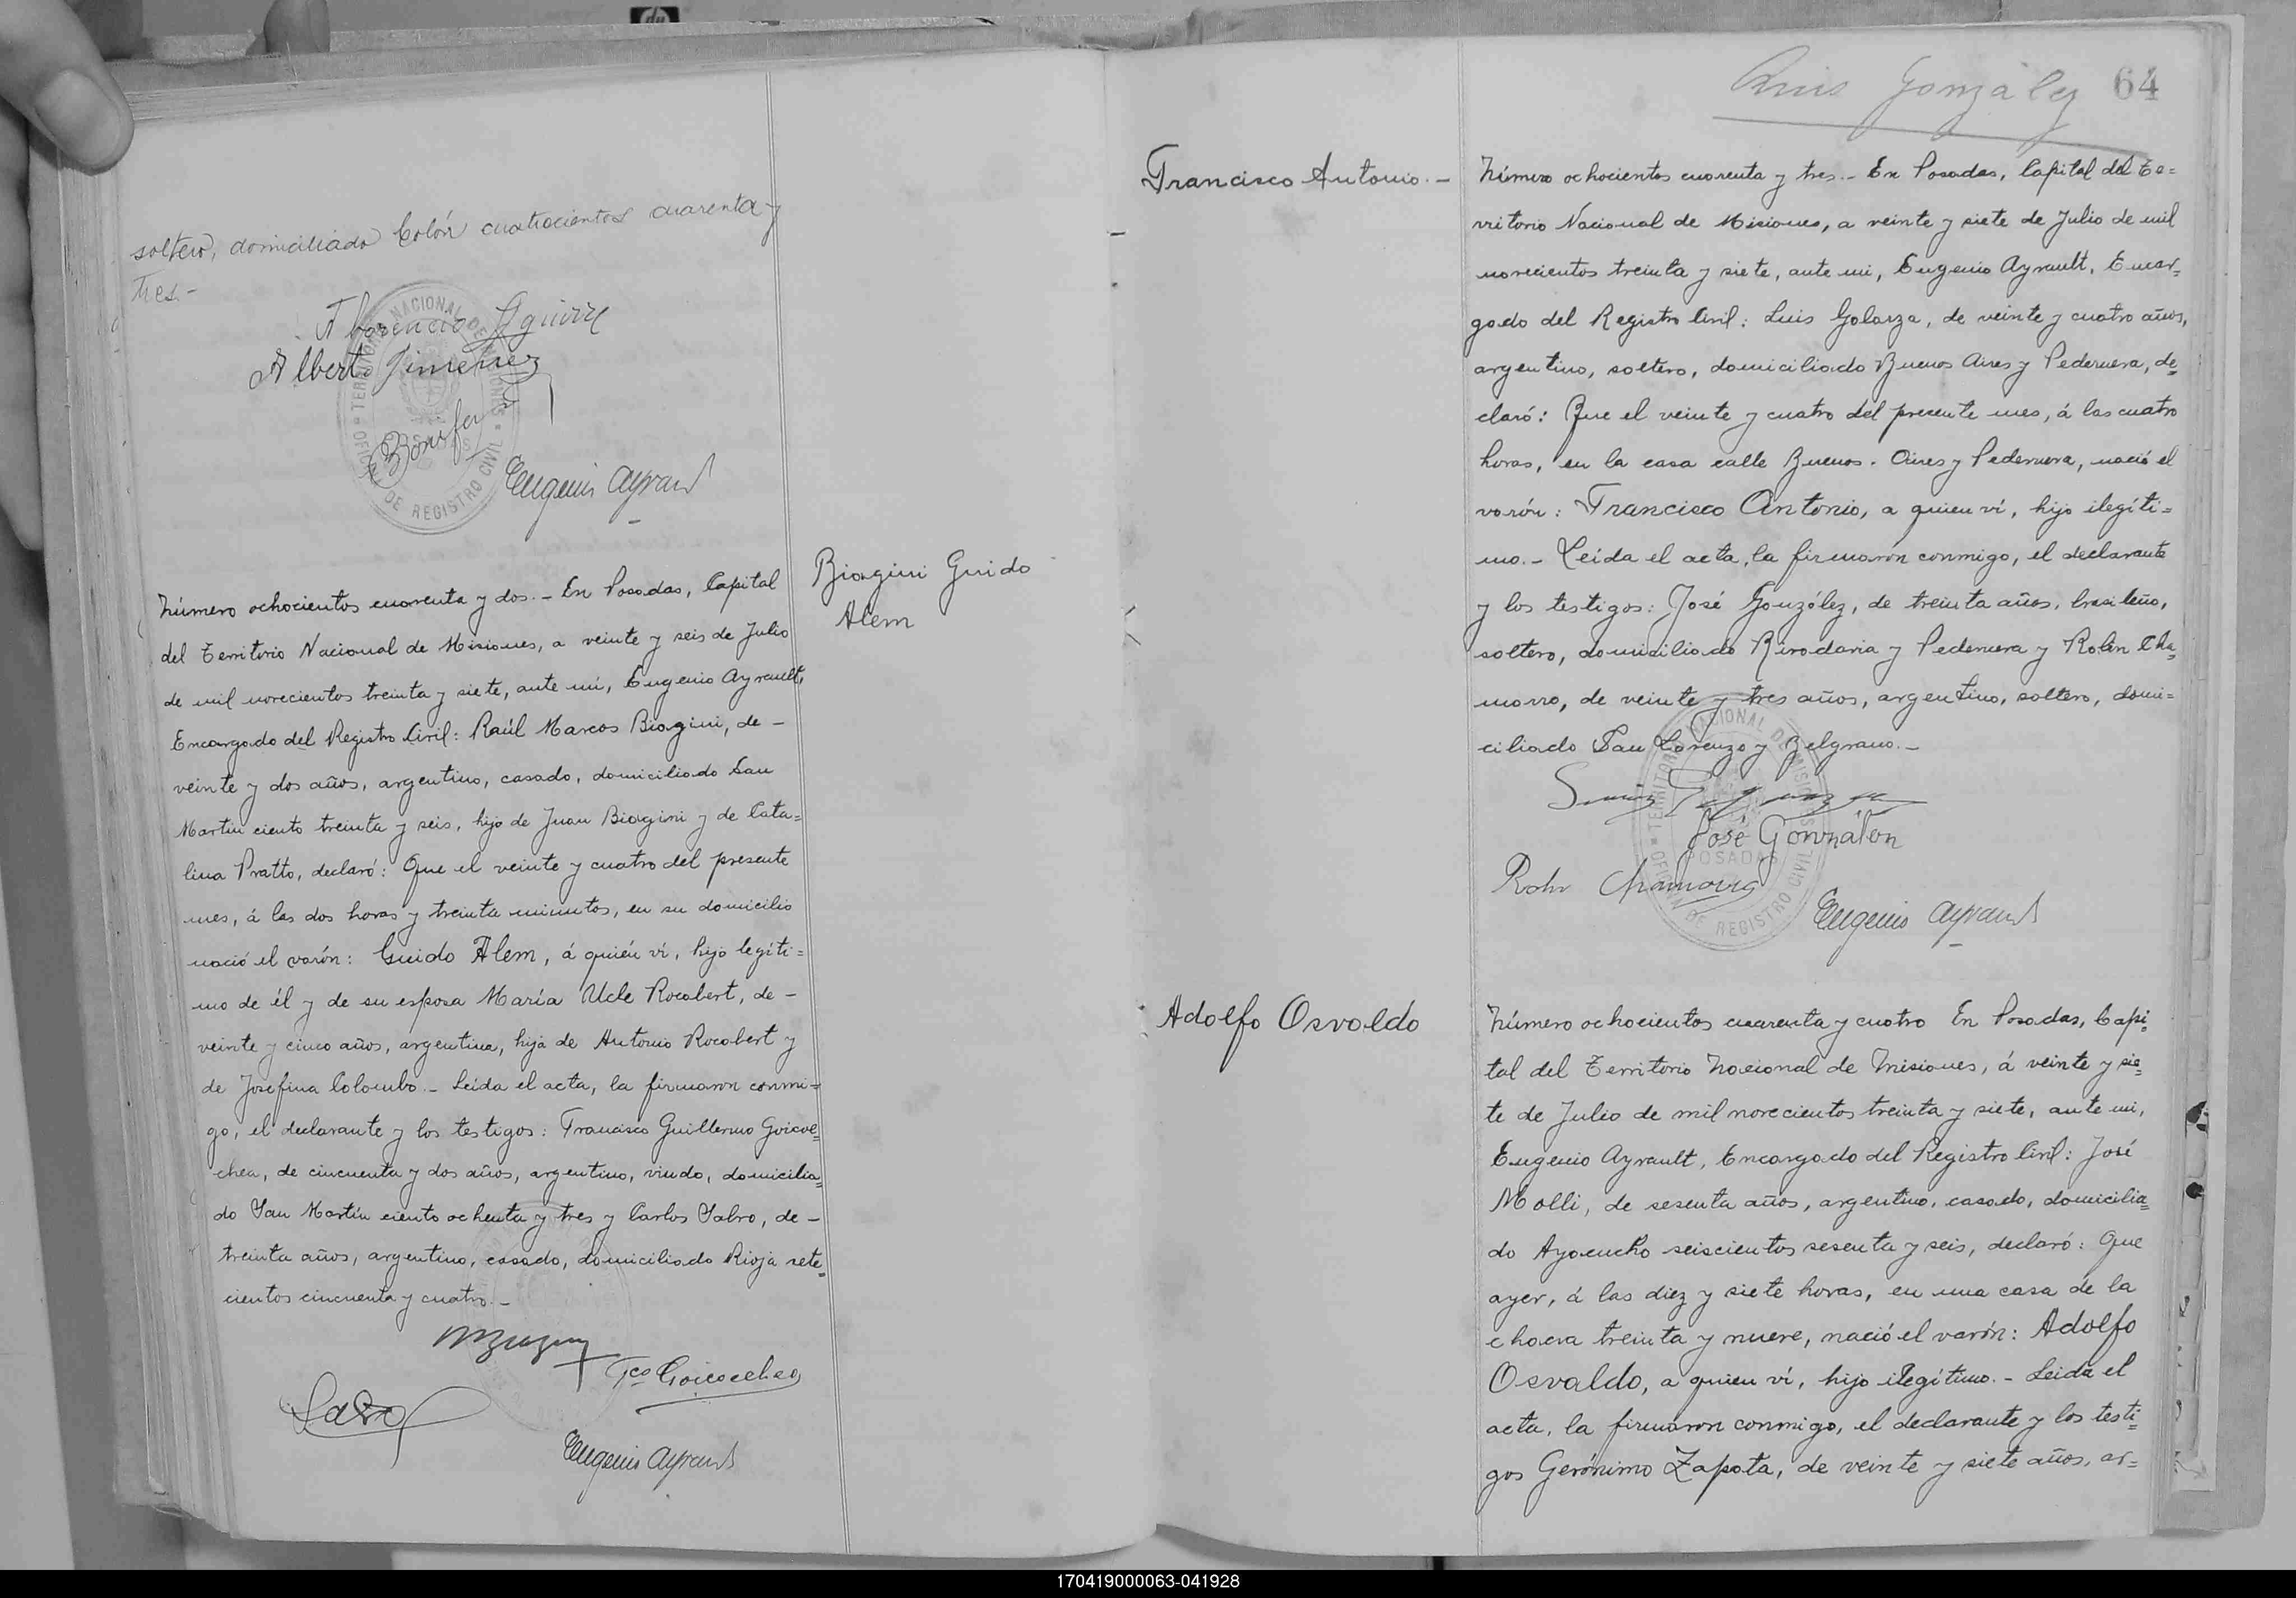 soltero, domiciliado Colón cuatrocientos cuarenta y
tres.-
Florencio Aguirre
Albert Jimenez
Bonifer
Eugenio Ayrault
TERRITORIO NACIONAL DE MISIONES
OFICINA DE REGISTRO CIVIL
POSADAS
Número ochocientos cuarenta y dos.- En Posadas, Capital
del Territorio Nacional de Misiones, a veinte y seis de Julio
de mil novecientos treinta y siete, ante mi, Eugenio Ayrault,
Encargado del Registro Civil: Raúl Marcos Biagini, de-
veinte y dos años, argentino, casado, domiciliado San
Martín ciento treinta y seis, hijo de Juan Biagini y de Cata=
lina Pratto, declaró: Que el veinte y cuatro del presente
mes, á las dos horas y treinta minutos, en su domicilio
nació el varón: Guido Alem, á quién ví, hijo legíti=
mo de él y de su esposa María Ucle Rocabert, de-
veinte y cinco años, argentina, hija de Antonio Rocabert y
de Josefina Colombo.- Leída el acta, la firmaron conmi=
go, el declarante y los testigos: Francisco Guillermo Goicoe=
chea, de cincuenta y dos años, argentino, viudo, domicilia=
do San Martín ciento ochenta y tres y Carlos Salvo, de-
treinta años, argentino, casado, domiciliado Rioja sete=
cientos cincuenta y cuatro.-
Fco Goicoechea
Eugenio Ayrault
Biagini Guido
Alem
Luis González
64
Francisco Antonio.-
Número ochocientos cuarenta y tres.- En Posadas, Capital del Te=
rritorio Nacional de Misiones, a veinte y siete de Julio de mil
novecientos treinta y siete, ante mi, Eugenio Ayrault, Encar=
gado del Registro Civil: Luis Galarza, de veinte y cuatro años,
argentino, soltero, domiciliado Buenos Aires y Pedernera, de=
claró: Que el veinte y cuatro del presente mes, á las cuatro
horas, en la casa calle Buenos. Aires y Pedernera, nació el
varón: Francisco Antonio, a quien ví, hijo ilegíti=
mo.- Leída el acta, la firmaron conmigo, el declarante
y los testigos: José González, de treinta años, brasileño,
soltero, domiciliado Rivadavia y Pedernera y Robin Cha=
morro, de veinte y tres años, argentino, soltero, domi=
ciliado San Lorenzo y Belgrano.-
José Gonzalez
Chamorro
Eugenio Ayrault
TERRITORIO NACIONAL DE MISIONES
OFICINA DE REGISTRO CIVIL
POSADAS
Adolfo Osvaldo
Número ochocientos cuarenta y cuatro En Posadas, Capi=
tal del Territorio Nacional de Misiones, á veinte y sie=
te de Julio de mil novecientos treinta y siete, ante mi,
Eugenio Ayrault, Encargado del Registro Civil: José
Molli, de sesenta años, argentino, casado, domicilia=
do Ayacucho seiscientos sesenta y seis, declaró: Que
ayer, á las diez y siete horas, en una casa de la
chacra treinta y nueve, nació el varón: Adolfo
Osvaldo, a quien ví, hijo ilegítimo.- Leida el
acta, la firmaron conmigo, el declarante y los testi=
gos Gerónimo Zapata, de veinte y siete años, ar=
170419000063-041928